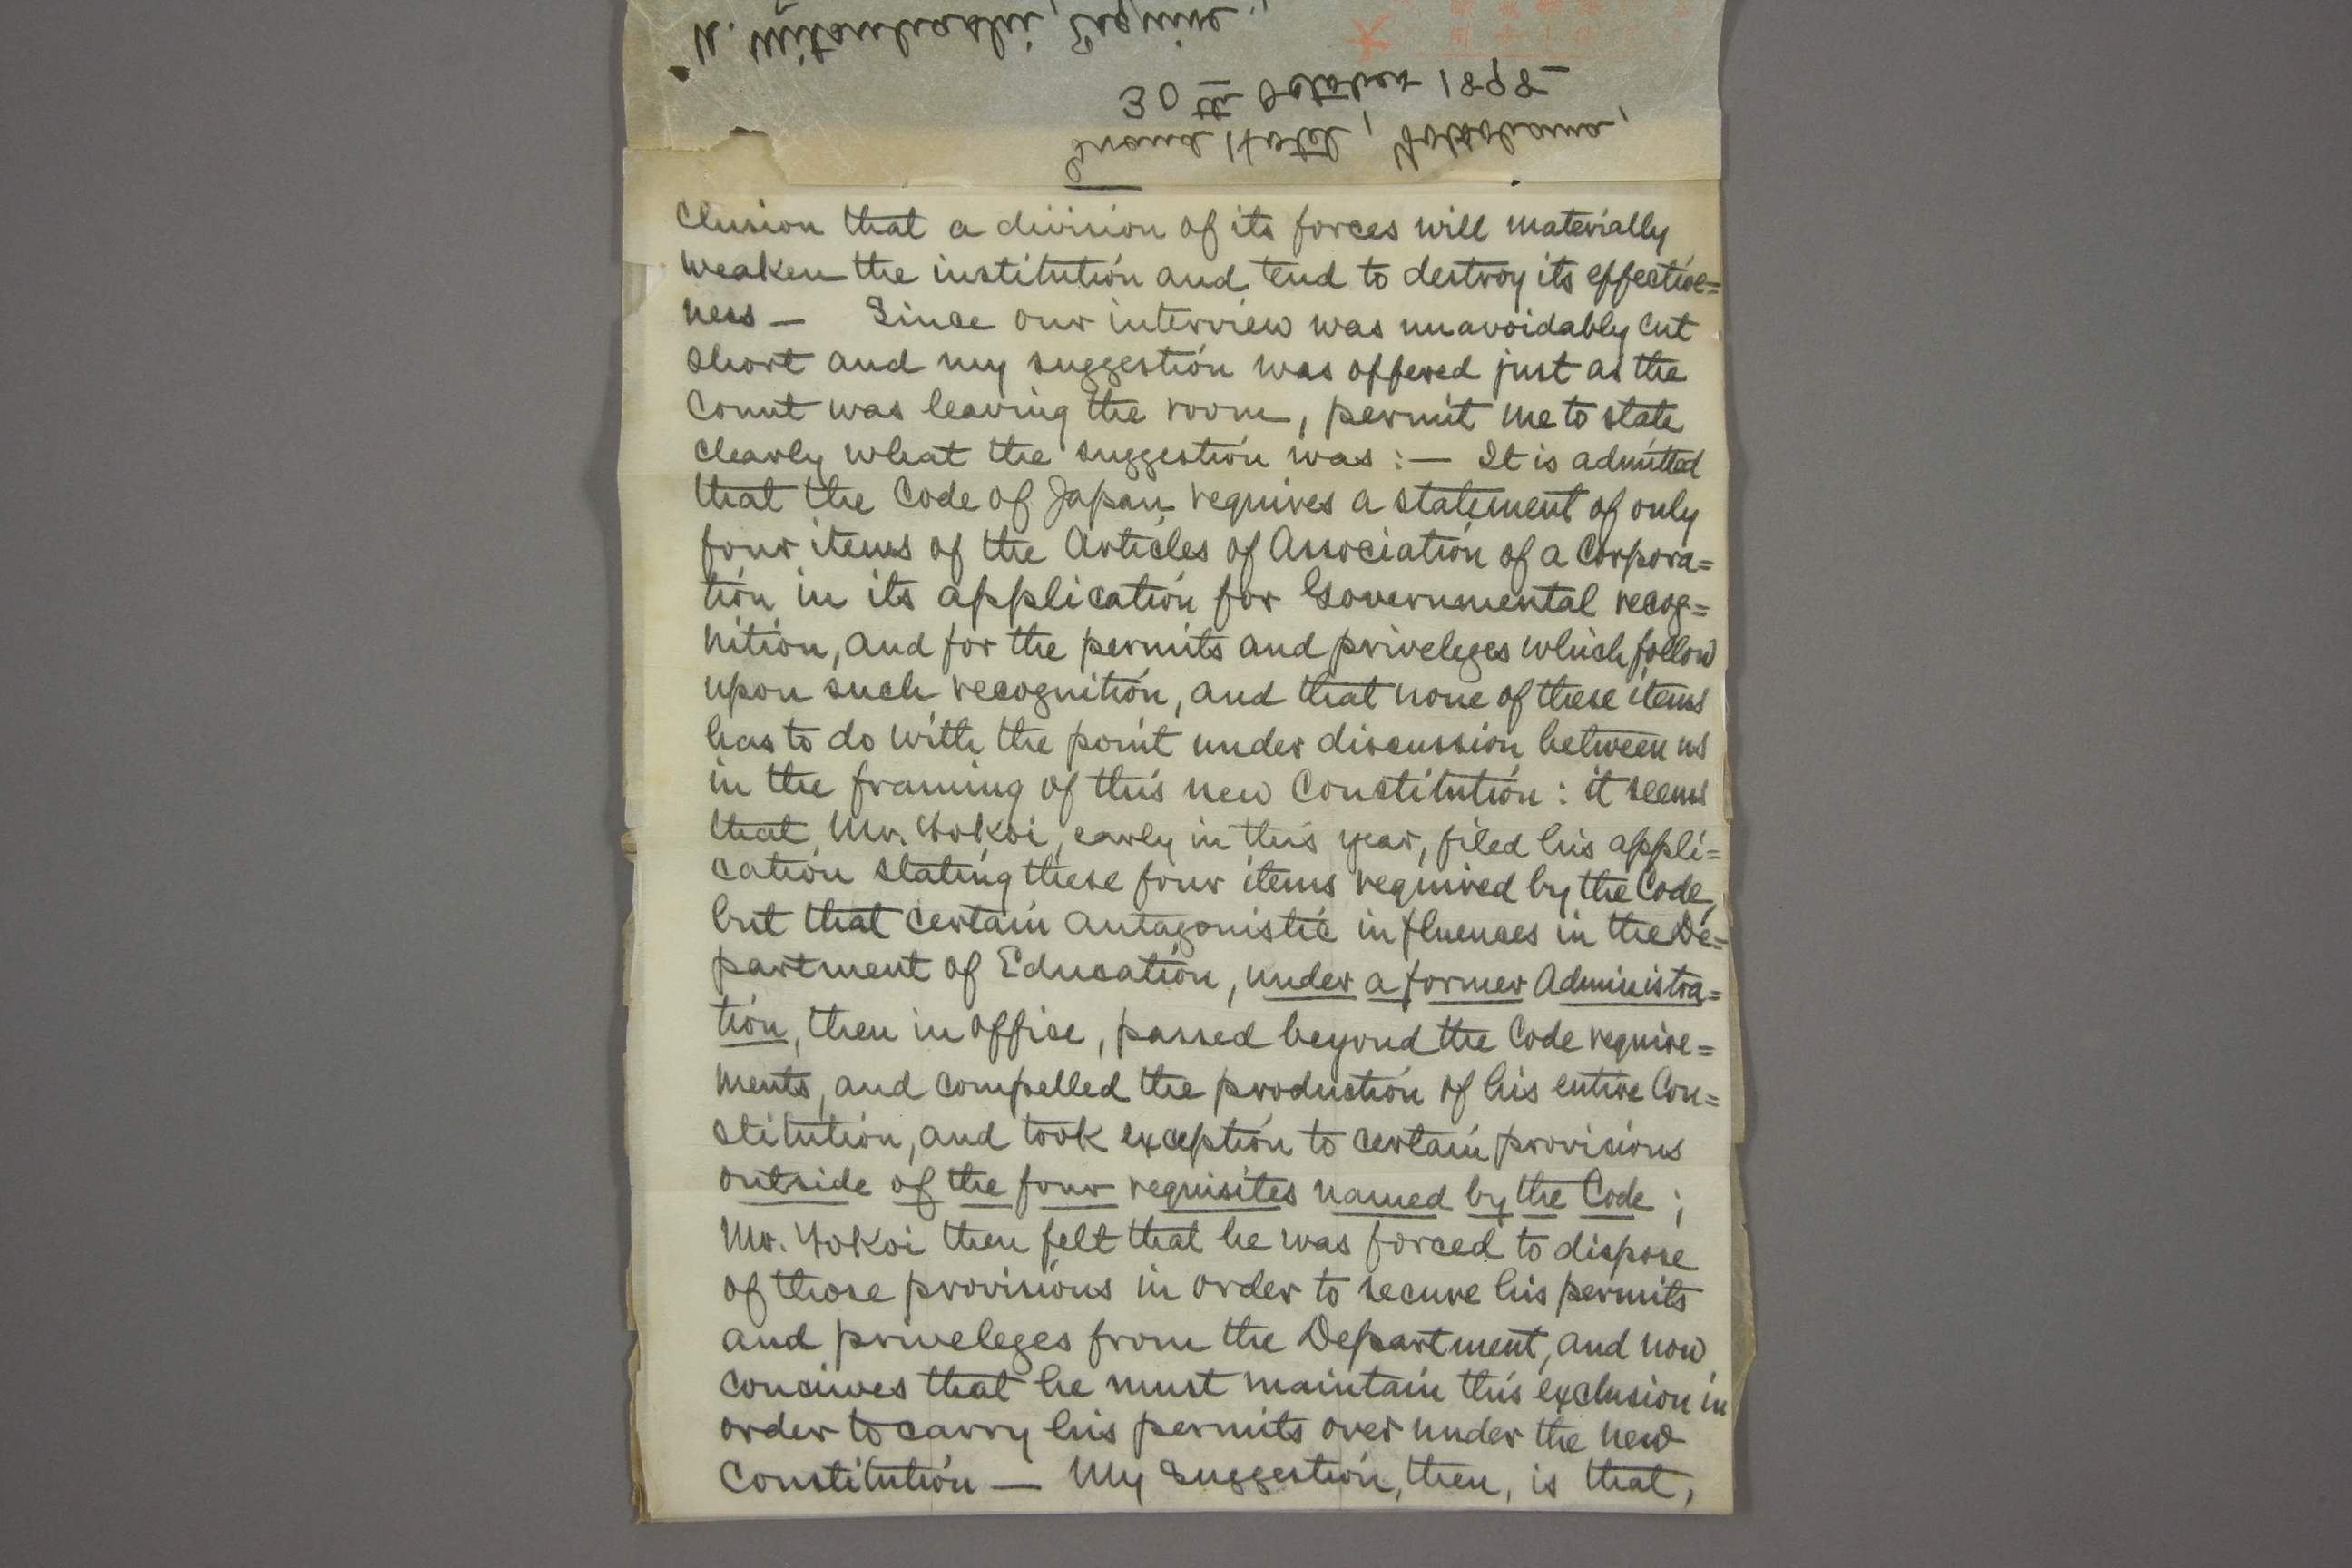 Grand Hotel, Yokohama,
30th October 1898
N. Mitonashi, Esquire,
clusion that a division of its forces will materially
weaken the institution and tend to destroy its effective=
ness — Since our interview was unavoidably cut
short and my suggestion was offered just as the
Count was leaving the room, permit me to state
clearly what the suggestion was :— It is admitted
that the Code of Japan requires a statement of only
four items of the Articles of Association of a Corpora=
tion in its application for Governmental recog=
nition, and for the permits and priveleges which follow
upon such recognition, and that none of these items
has to do with the point under discussion between us
in the framing of this new Constitution : it seems
that Mr. Yokoi, early in this year, filed his appli=
cation stating these four items required by the Code,
but that certain antagonistic influences in the De=
partment of Education, under a former Administra=
tion, then in office, passed beyond the Code require=
ments, and compelled the production of his entire Con=
stitution, and took exception to certain provisions
outside of the four requisites named by the Code ;
Mr. Yokoi then felt that he was forced to dispose
of those provisions in order to secure his permits
and priveleges from the Department, and now
conceives that he must maintain this exclusion in
order to carry his permits over under the new
Constitution — My Suggestion, then, is that,